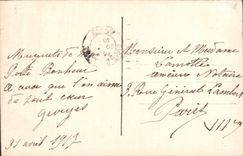 Muguets de Mai
Porte Bonheur
a ceux que l'on aime
de tout cœur
Georges
31 avril 1917
Monsieur & Madame
Lamotte
ancien Notaire
9. Rue Général Lambert
Paris
VII